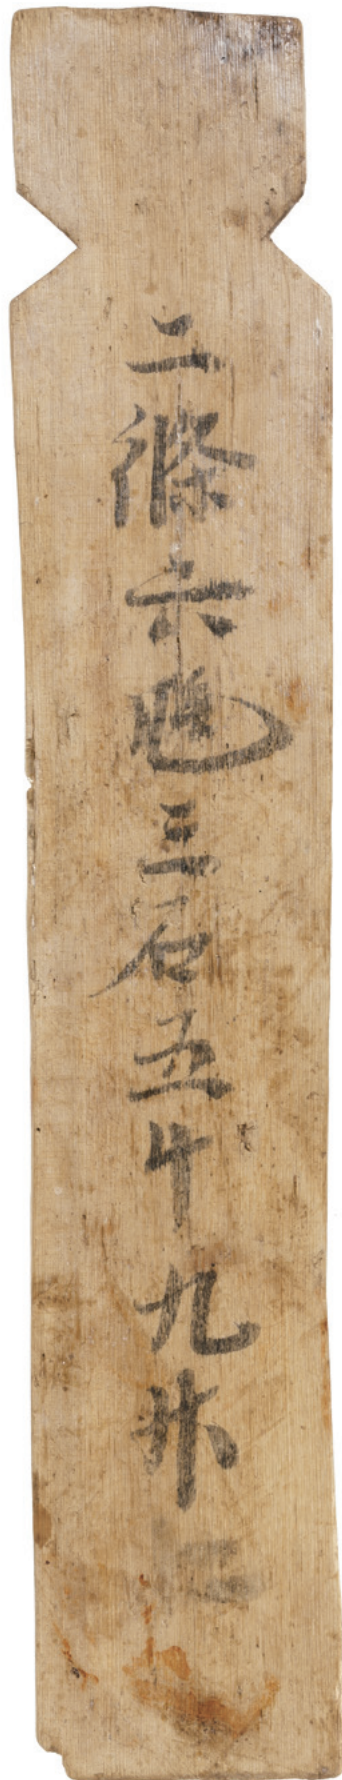 二條六瓱三石五斗九升